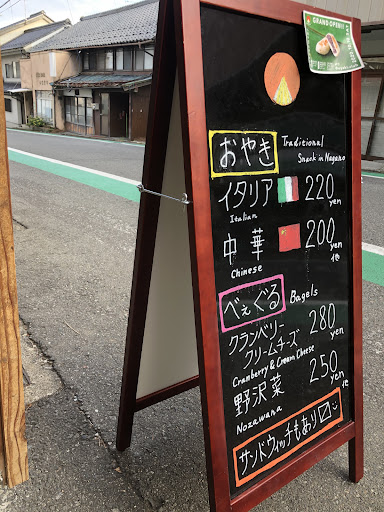 GRAND OPEN!!
おやき Traditional
Snack in Nagano
イタリア 220
Italian yen
中華 200
yen
Chinese 他
べぇぐる Bagels
クランベリー
クリームチーズ 280
yen
Cranberry & Cream Cheese
野沢菜 250
yen
Nozawana 他
サンドウィッチもあり〼